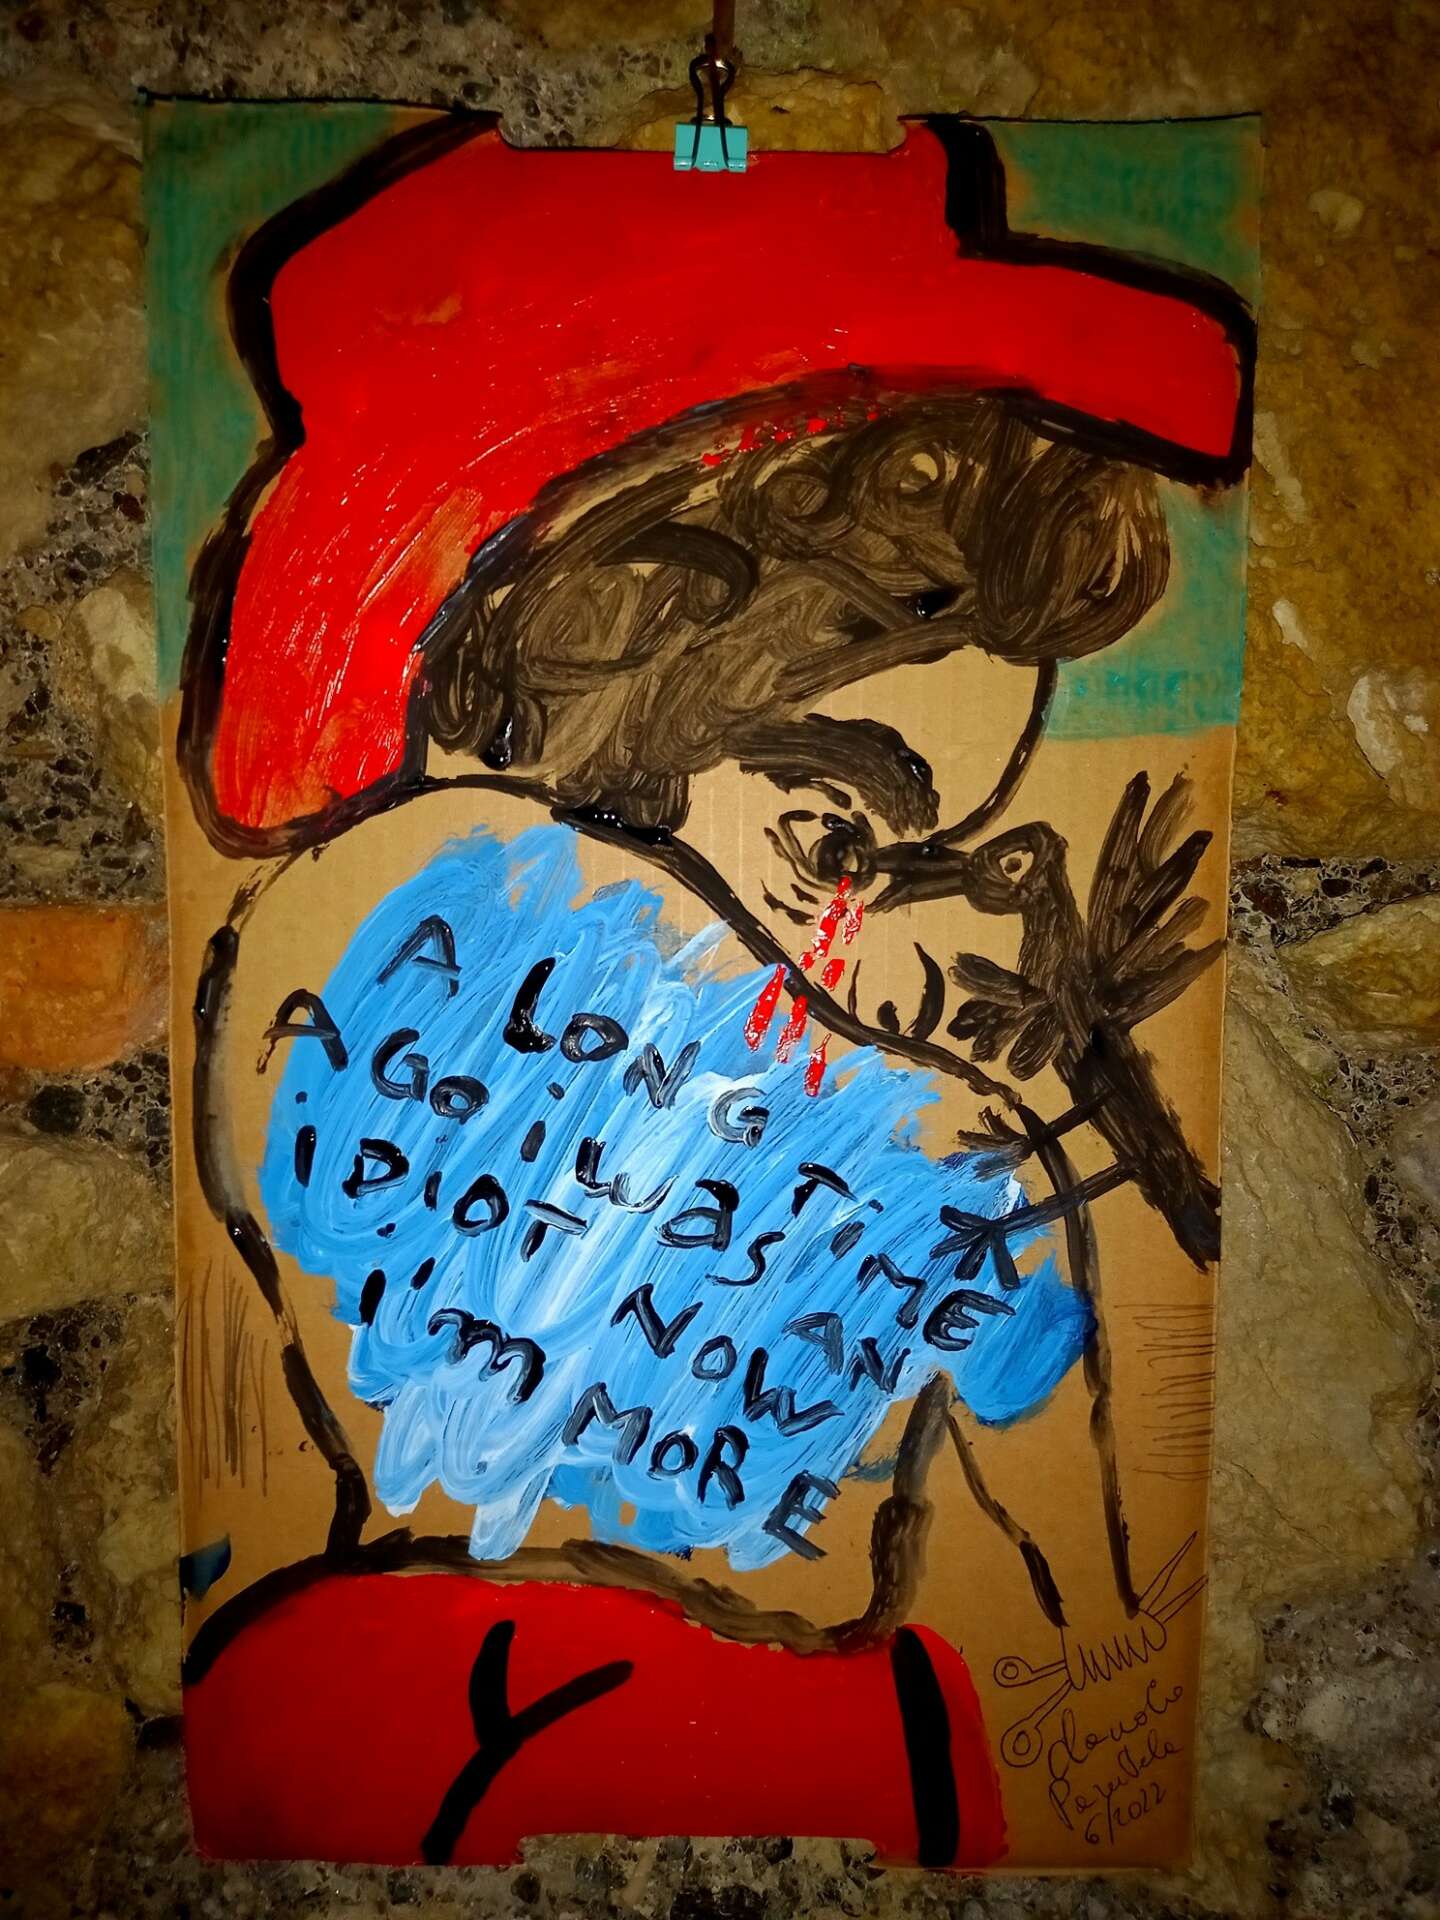 A LONG TiME
AGO i WaS AN
iDiOT NOW
i'm MORE
Claudio
Parentela
6/2022